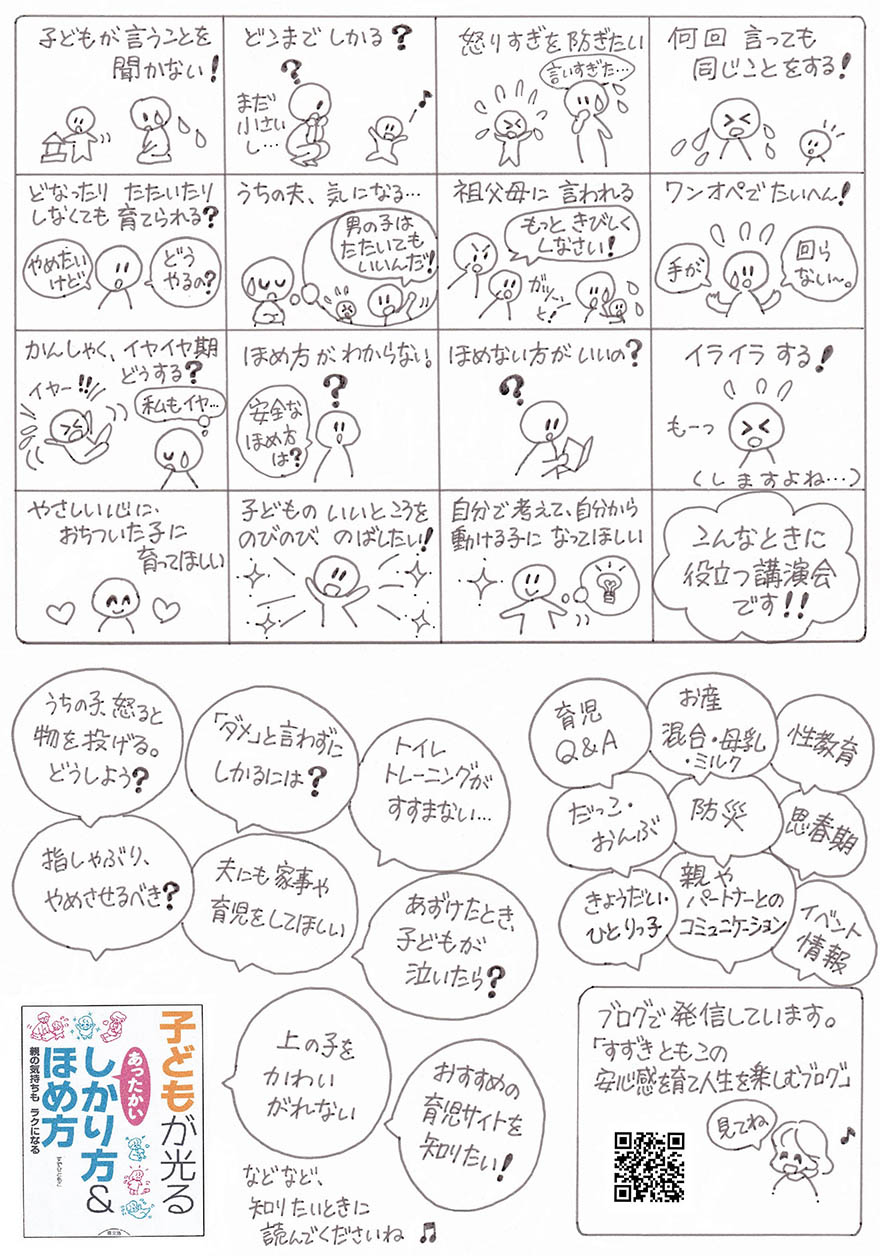 子どもが言うことを
聞かない!
どこまで しかる?
?
まだ
小さい
し…
怒りすぎを 防ぎたい
言いすぎた…
何回 言っても
同じことをする!
どなったり たたいたり
しなくても 育てられる?
やめたい
けど
どう
やるの?
うちの夫、気になる…
男の子は
たたいても
いいんだ!
祖父母に 言われる
もっと きびしく
しなさい!
ガツーン
と!
ワンオペで たいへん!
手が
回ら
ない〜。
かんしゃく、イヤイヤ期
どうする?
イヤー!!
私もイヤ…
ほめ方が わからない。
?
安全な
ほめ方
は?
ほめない方が いいの?
?
イライラ する!
もーっ
(しますよね…)
やさしい心に、
おちついた子に
育ってほしい
子どもの いいところを
のびのび のばしたい!
自分で考えて、自分から
動ける子に なってほしい
こんなときに
役立つ講演会
です!!
うちの子、怒ると
物を投げる。
どうしよう?
「ダメ」と言わずに
しかるには?
トイレ
トレーニングが
すすまない…
指しゃぶり、
やめさせるべき?
夫にも 家事や
育児をしてほしい
あずけたとき、
子どもが
泣いたら?
上の子を
かわい
がれない
おすすめの
育児サイトを
知りたい!
などなど、
知りたいときに
読んでくださいね ♫
育児
Q&A
お産
混合・母乳
・ミルク
性教育
だっこ・
おんぶ
防災
思春期
きょうだい・
ひとりっ子
親や
パートナーとの
コミュニケーション
イベント
情報
子どもが光る
あったかい
しかり方&
ほめ方
親の気持ちも ラクになる
ブログで 発信しています。
「すずきともこの
安心感を育て人生を楽しむブログ」
見てね
♪